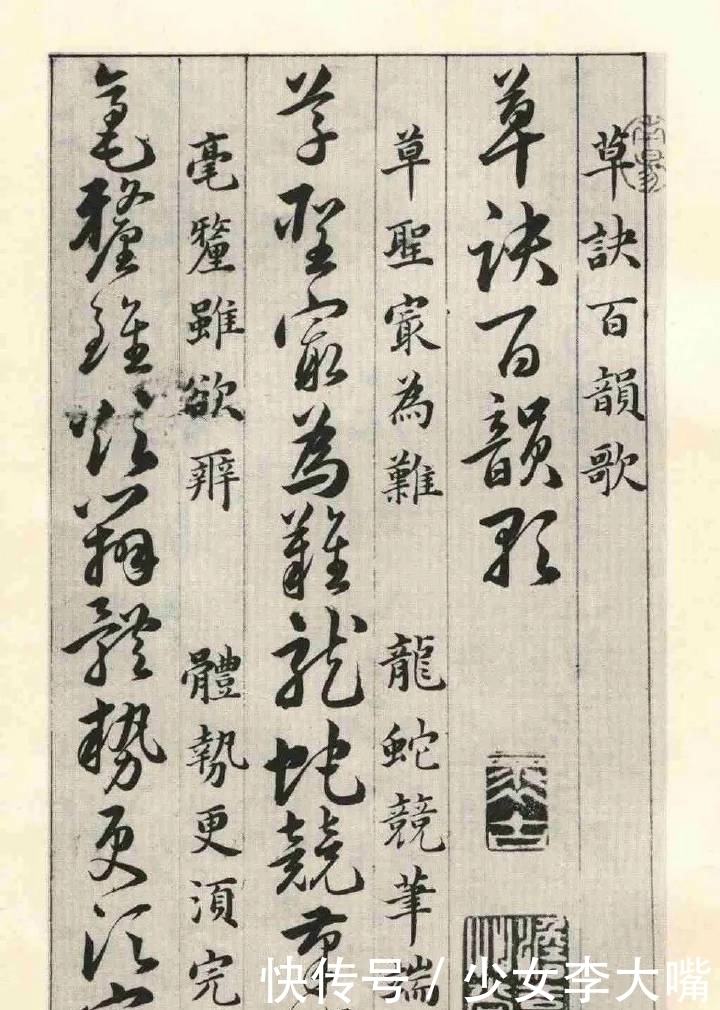 草訣百韻歌
草诀百韻歌
草聖㝡為難 龍蛇競筆端
草聖㝡為難龍蛇競筆
毫釐雖欲辨 體勢更須完
毫釐雖欲辨體勢更須完
快传号 / 少女李大嘴